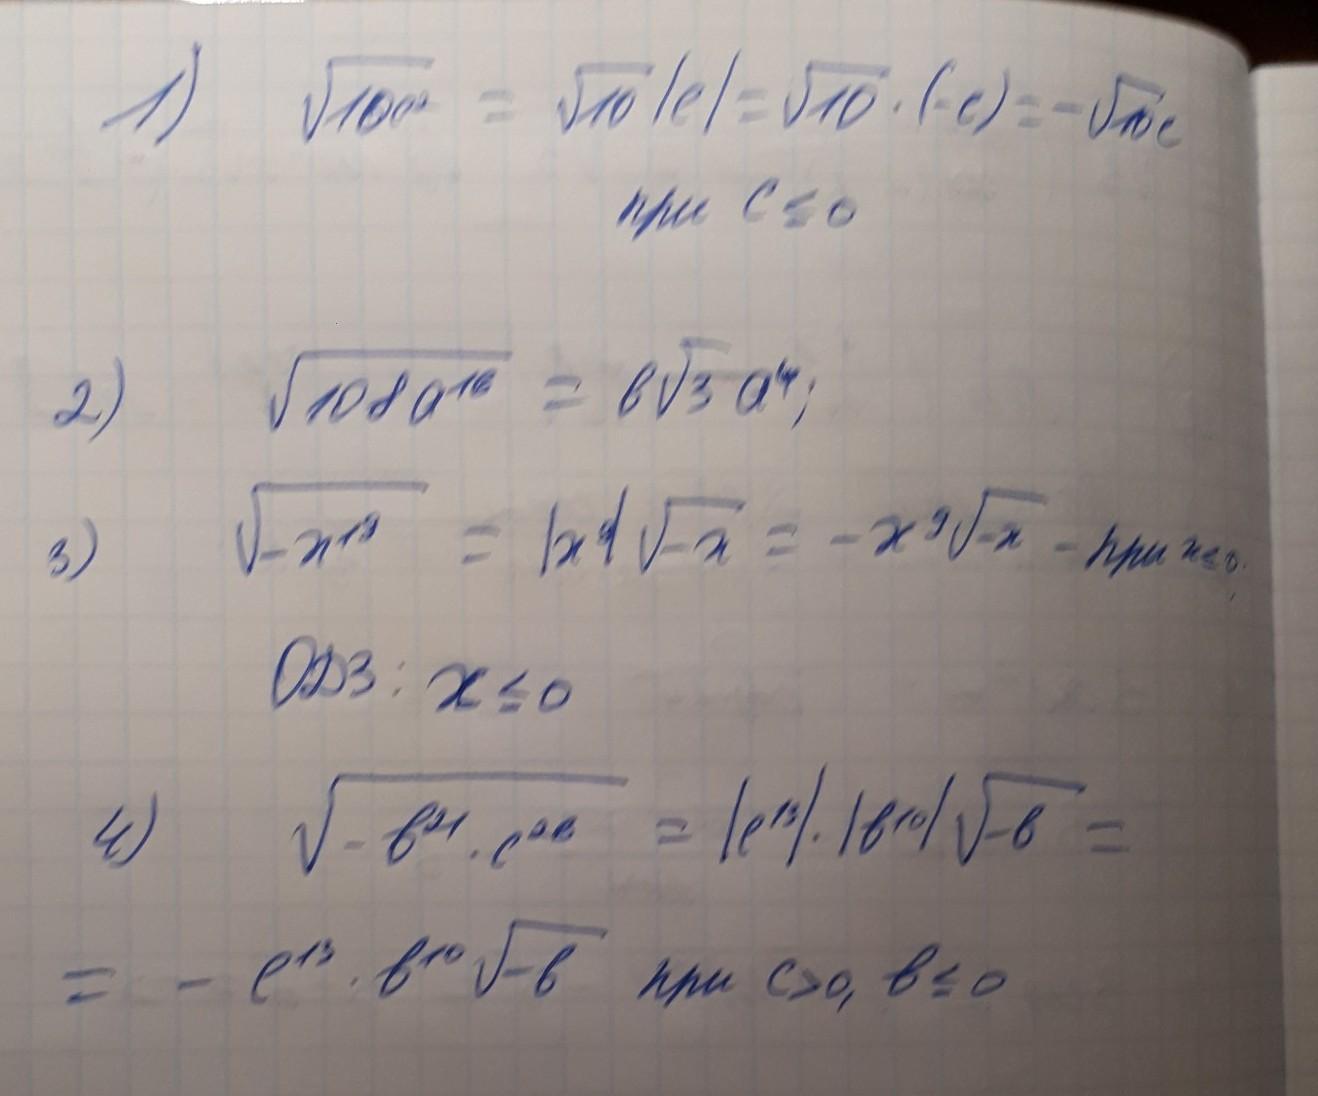 1) √10c² = √10 |c| = √10 · (-c) = -√10c
при c ≤ 0
2) √108a¹⁶ = 6√3 a⁴;
3) √-x¹⁹ = |x⁹| √-x = -x⁹√-x - при x ≤ 0.
ОДЗ: x ≤ 0
4) √-b²¹ · c²⁶ = |c¹³| · |b¹⁰| √-b =
= - c¹³ · b¹⁰ √-b при c > 0, b ≤ 0